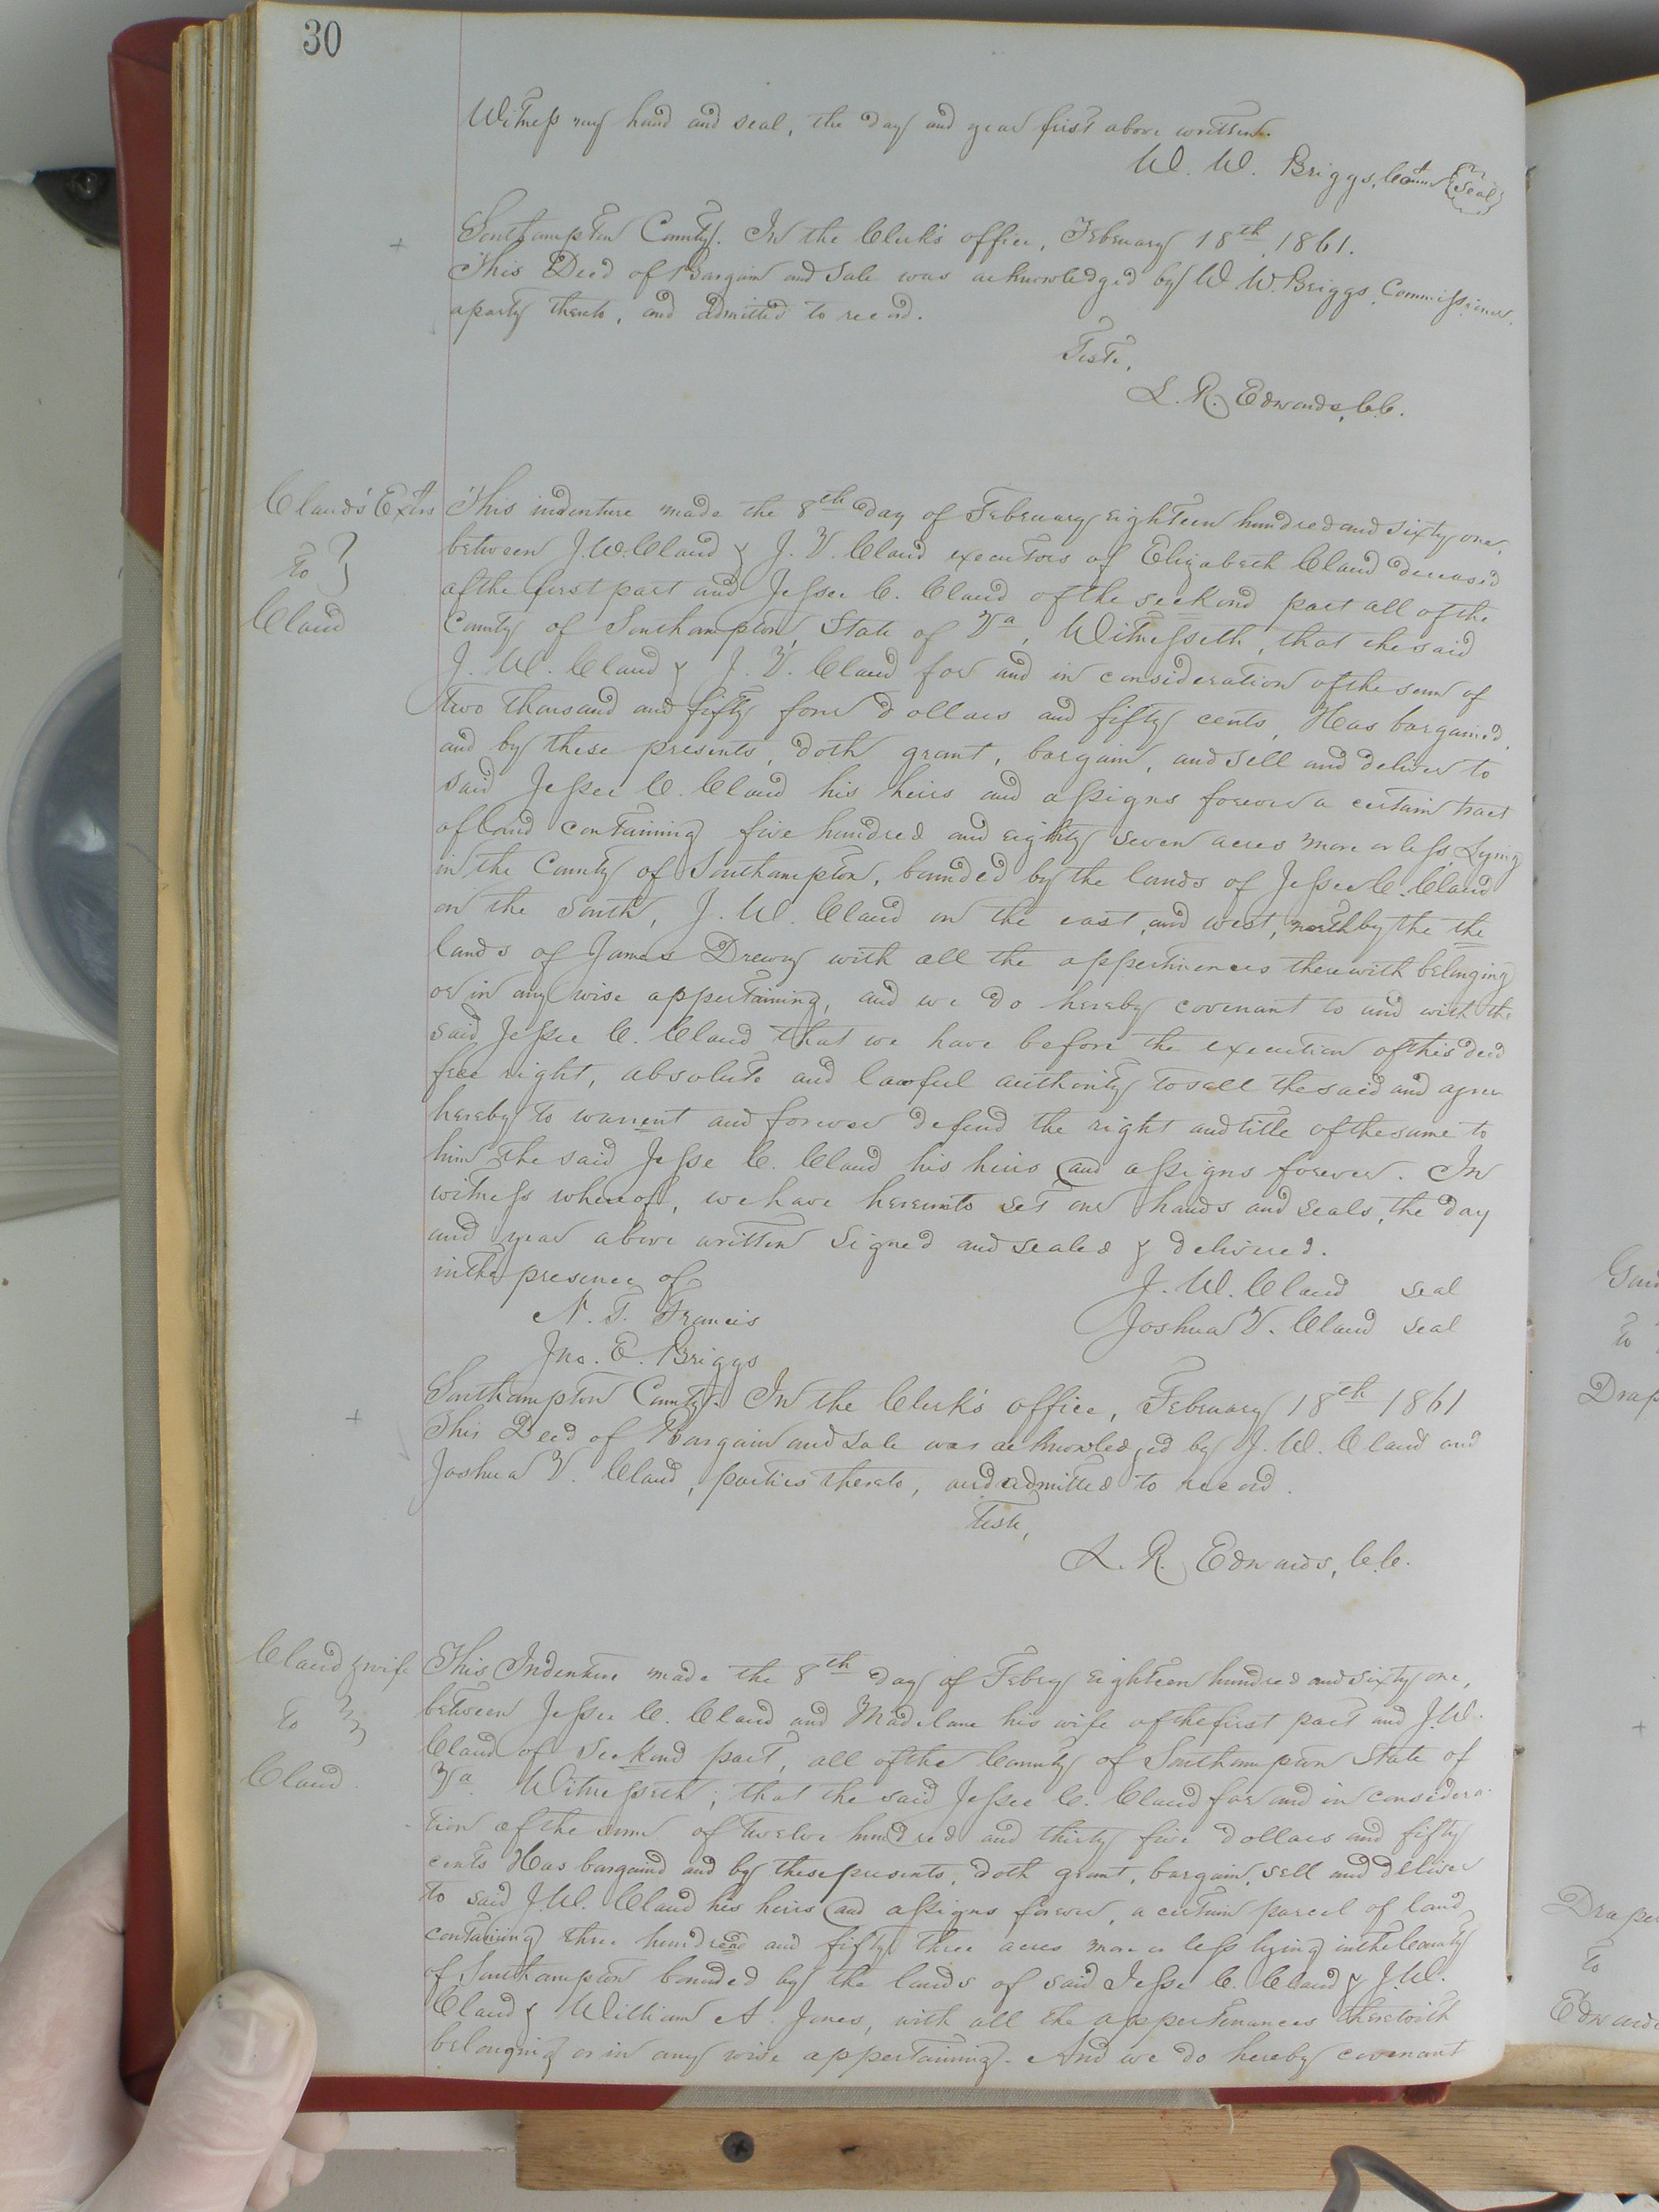 30
Witness my hand and seal, the day and year first above written.
W. W. Briggs, Comr Seal
Southampton County. In the Clerk's office, February 18th, 1861.
This Deed of Bargain and Sale was acknowledged by W. W. Briggs, Commissioner,
a party thereto, and admitted to record.
Teste,
L. R. Edwards, C.C.
Claud's Extrs
to
Claud
This indenture made the 8th day of February eighteen hundred and sixty one,
between J. W. Claud & J. V. Claud executors of Elizabeth Claud deceased
of the first part and Jessee C. Claud of the seckond part all of the
County of Southampton, State of Va, Witnesseth, that the said
J. W. Claud & J. V. Claud for and in consideration of the sum of
two thousand and fifty four dollars and fifty cents, Has bargained,
and by these presents, doth grant, bargain, and sell and deliver to
said Jessee C. Claud his heirs and assigns forever a certain tract
of land containing five hundred and eighty seven acres more or less, Lying
in the County of Southampton, bounded by the lands of Jessee C. Claud
on the South, J. W. Claud on the east, and west, north by the the
lands of James Drewry with all the appertinences therewith belonging
or in any wise appertaining, and we do hereby covenant to and with the
said Jessee C. Claud that we have before the execution of this deed
free right, absolute and lawful authority to sell the said and agree
hereby to warrent and forever defend the right and title of the same to
him the said Jesse C. Claud his heirs and assigns forever. In
witness whereof, we have hereunto set our hands and seals, the day
and year above written Signed and sealed & delivered.
in the presence of
J. W. Claud seal
N. T. Francis
Joshua V. Claud seal
Jno. E. Briggs
Southampton County. In the Clerk's office, February 18th 1861
This Deed of Bargain and Sale was acknowledged by J. W. Claud and
Joshua V. Claud, parties thereto, and admitted to record.
Teste,
L. R. Edwards, C.C.
Claud & wife
to
Claud.
This Indenture made the 8th day of Febry eighteen hundred and sixty one,
between Jessee C. Claud and Madelane his wife of the first part and J. W.
Claud of Seckond part, all of the County of Southampton State of
Va. Witnesseth; that the said Jessee C. Claud for and in considera-
tion of the sum of twelve hundred and thirty five dollars and fifty
cents Has bargaind and by these presents, doth grant, bargain, sell and deliver
to said J. W. Claud his heirs and assigns forever, a certain parcel of land
containing three hundread and fifty three acres more or less lying in the County
of Southampton bounded by the lands of said Jesse C. Claud & J. W.
Claud & William A. Jones, with all the appertenances therewith
belonging or in any wise appertaining. And we do hereby covenant
to
Drap
to